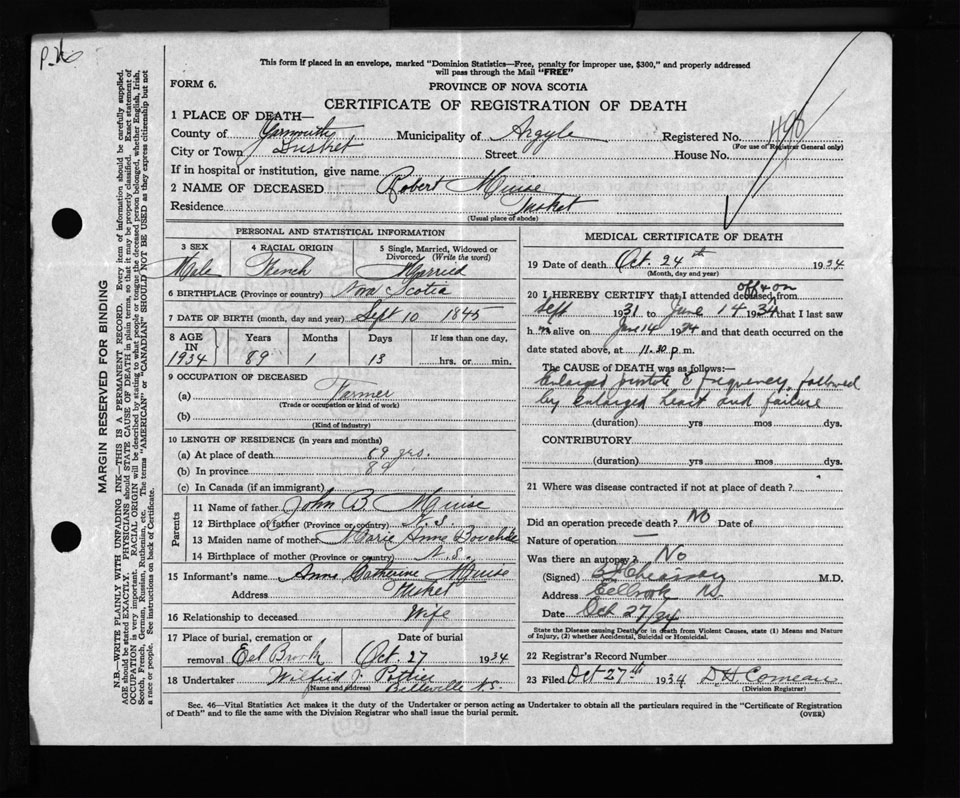 This form if placed in an envelope, marked "Dominion Statistics—Free, penalty for improper use, $300," and properly addressed
will pass through the Mail "FREE"
FORM 6.
PROVINCE OF NOVA SCOTIA
CERTIFICATE OF REGISTRATION OF DEATH
1 PLACE OF DEATH—
County of Yarmouth Municipality of Argyle Registered No. 490
(For use of Registrar General only)
City or Town Tusket Street House No.
If in hospital or institution, give name
2 NAME OF DECEASED Robert Muise
Residence Tusket
(Usual place of abode)
PERSONAL AND STATISTICAL INFORMATION
3 SEX 4 RACIAL ORIGIN 5 Single, Married, Widowed or
Divorced (Write the word)
Male French Married
6 BIRTHPLACE (Province or country) Nova Scotia
7 DATE OF BIRTH (month, day and year) Sept 10 1845
8 AGE IN Years Months Days If less than one day,
1934 89 1 13 hrs. or min.
9 OCCUPATION OF DECEASED
(a) Farmer
(Trade or occupation or kind of work)
(b)
(Kind of industry)
10 LENGTH OF RESIDENCE (in years and months)
(a) At place of death 89 yrs.
(b) In province 89
(c) In Canada (if an immigrant)
Parents
11 Name of father John B. Muise
12 Birthplace of father (Province or country) N.S.
13 Maiden name of mother Marie Anne
14 Birthplace of mother (Province or country) N.S.
15 Informant's name Anne Catherine Muise
Address Tusket
16 Relationship to deceased Wife
17 Place of burial, cremation or Date of burial
removal Eel Brook Oct. 27 1934
18 Undertaker Wilfred J. Pothier
(Name and address) Belleville N.S.
MEDICAL CERTIFICATE OF DEATH
19 Date of death Oct. 24th 1934
(Month, day and year)
off & on
20 I HEREBY CERTIFY that I attended deceased from
Sept 1931 to June 14 1934 that I last saw
him alive on June 14 1934 and that death occurred on
date stated above, at 11.30 p.m.
The CAUSE OF DEATH was as follows:—
Enlarged & frequency, followed
by enlarged heart and failure
(duration) yrs mos dys.
CONTRIBUTORY
(duration) yrs mos dys.
21 Where was disease contracted if not at place of death?
Did an operation precede death? No Date of
Nature of operation —
Was there an autopsy? No
(Signed) M.D.
Address Eelbrook NS.
Date Oct 27/34
State the Disease causing Death, or in death from Violent Causes, state (1) Means and Nature
of Injury, (2) whether Accidental, Suicidal or Homicidal.
22 Registrar's Record Number
23 Filed Oct 27th 1934 D H Comeau
(Division Registrar)
Sec. 46—Vital Statistics Act makes it the duty of the Undertaker or person acting as Undertaker to obtain all the particulars required in the "Certificate of Registration
of Death" and to file the same with the Division Registrar who shall issue the burial permit.
(OVER)
MARGIN RESERVED FOR BINDING
N.B.—WRITE PLAINLY WITH UNFADING INK—THIS IS A PERMANENT RECORD. Every item of information should be carefully supplied.
AGE should be stated EXACTLY. PHYSICIANS should STATE CAUSE OF DEATH in plain terms, so that it may be properly classified. Exact statement of
OCCUPATION is very important. RACIAL ORIGIN will be described by stating to what people or tongue the deceased person belonged, whether English, Irish,
Scotch, French, German, Russian, Ruthenian, etc. The terms "AMERICAN" or "CANADIAN" SHOULD NOT BE USED as they express citizenship but not
a race or people. See instructions on back of Certificate.